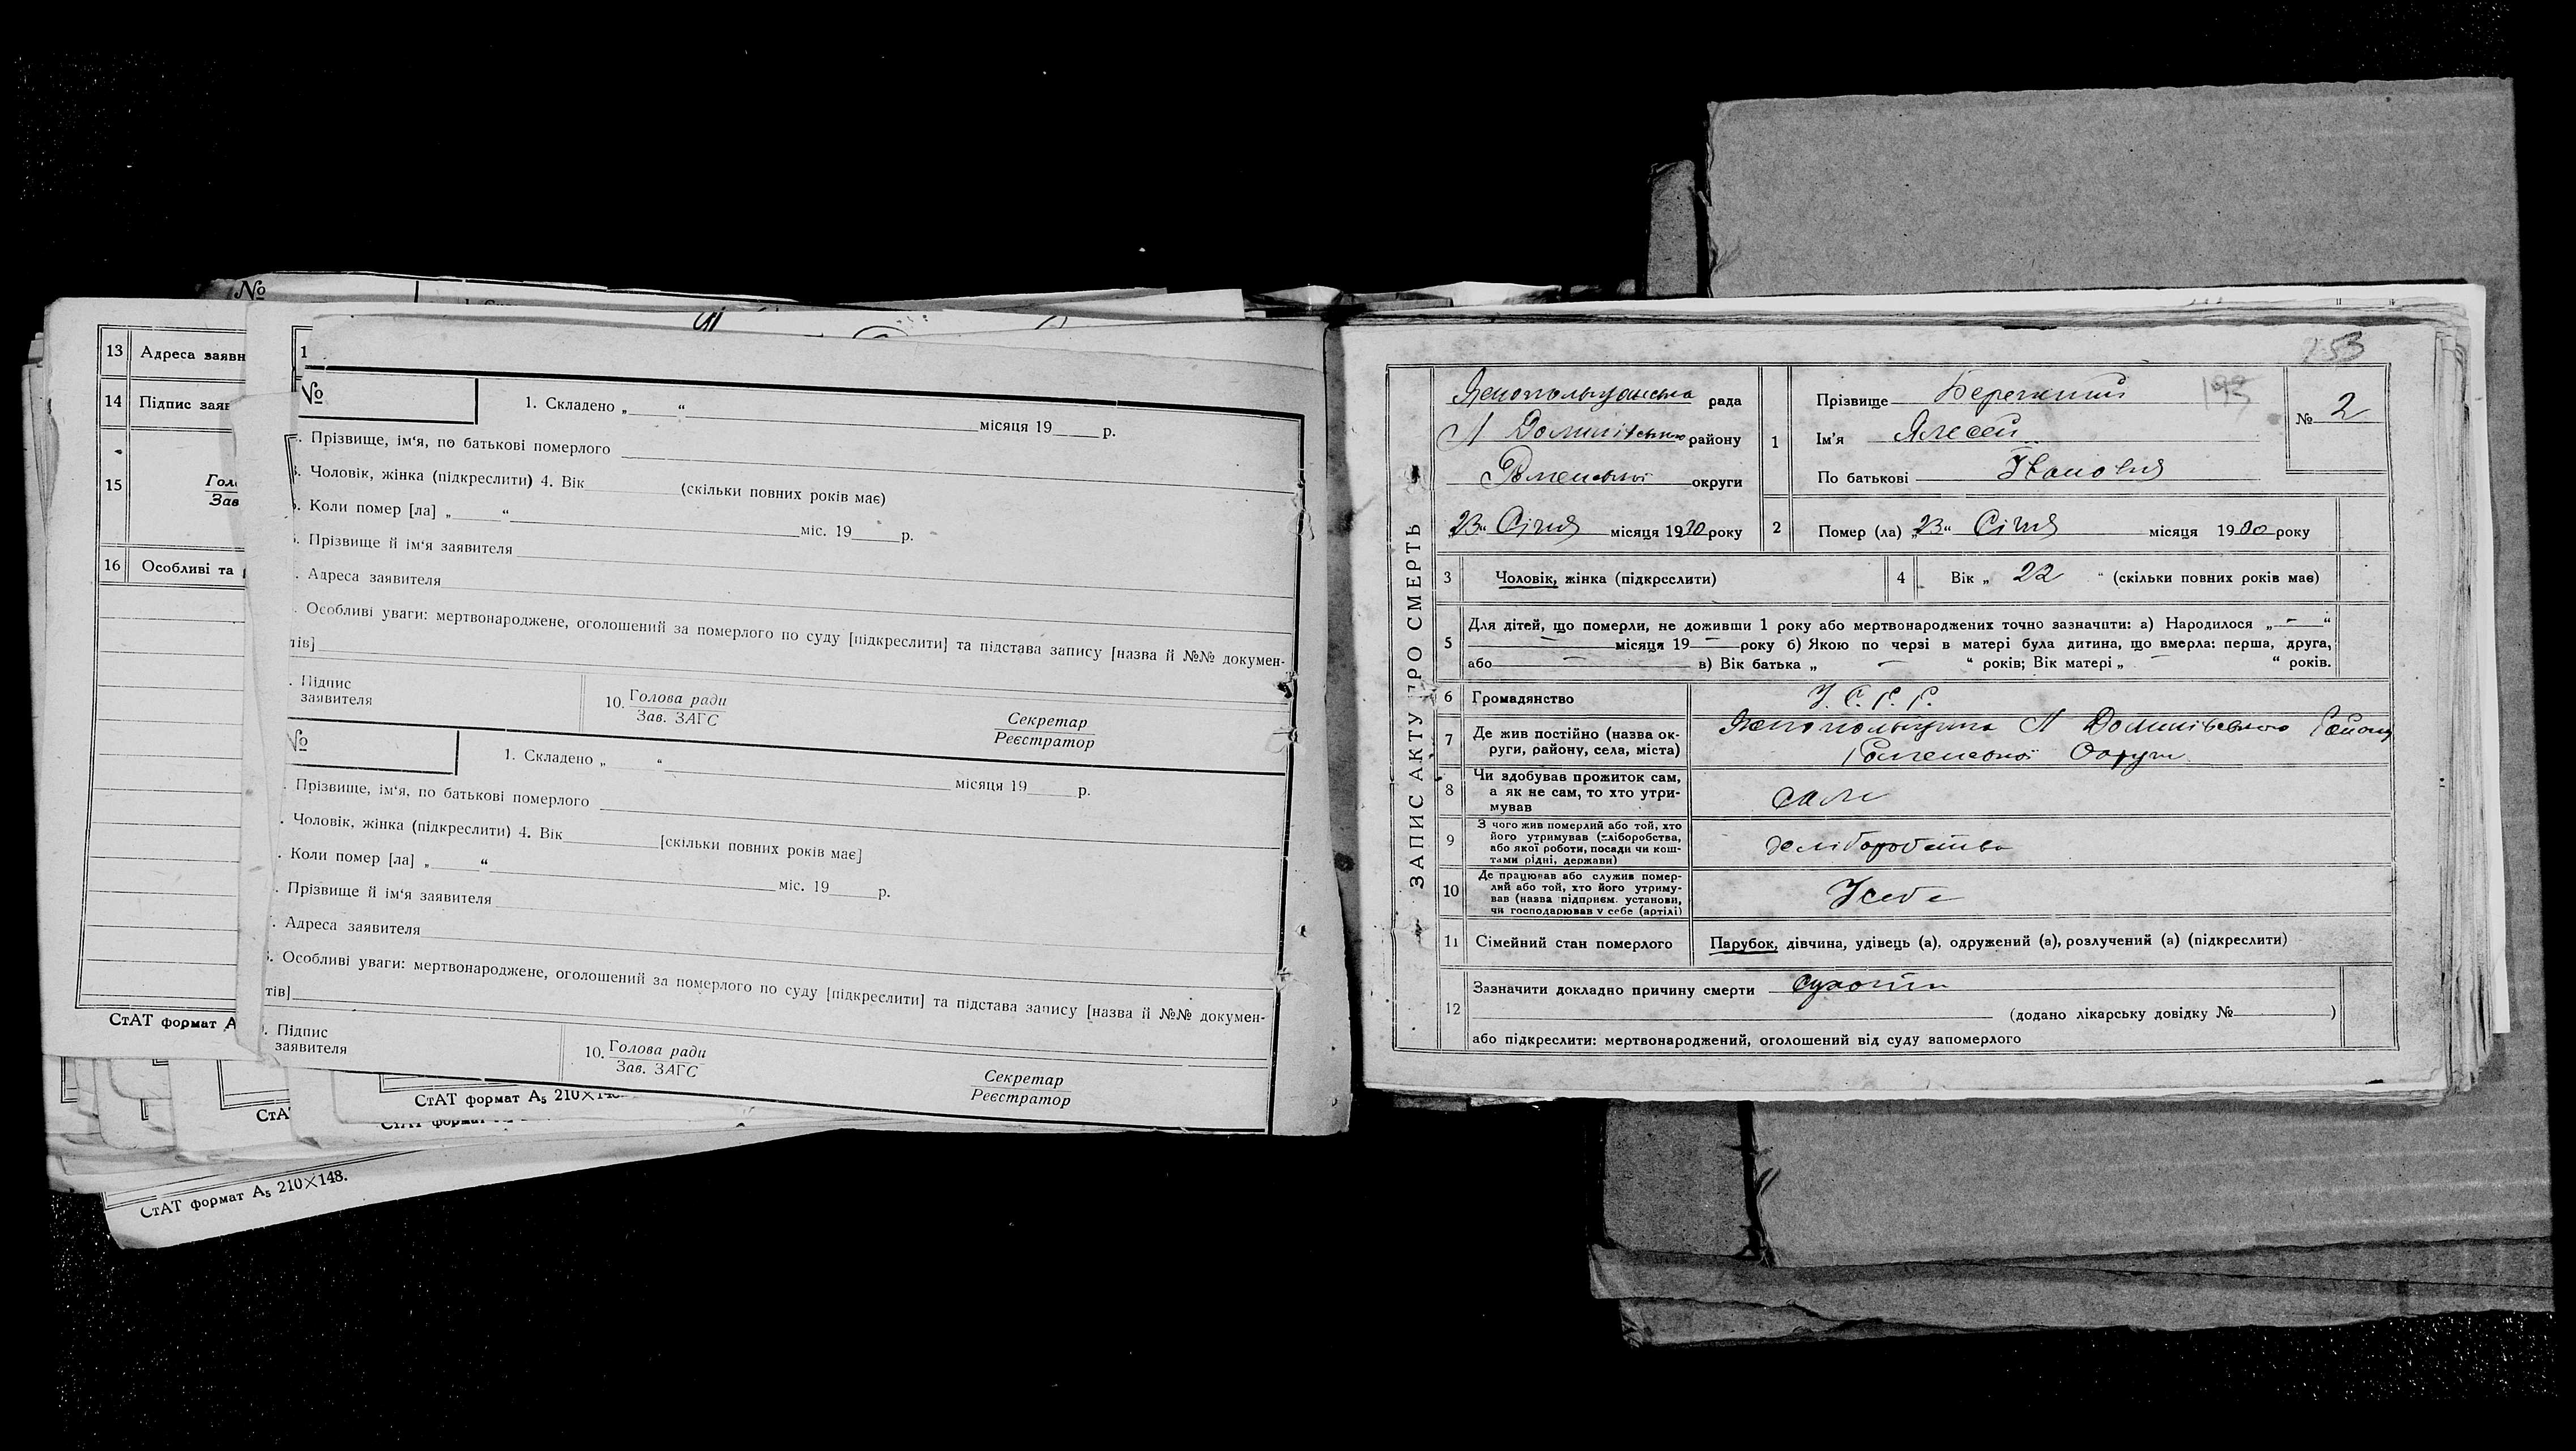 №
13 Адреса заявн
14 Підпис заяв
15 Голо
Зав
16 Особливі та
СтАТ формат А
СтАТ формат А₅ 210×148.
СтА
№
1. Складено „ “ місяця 19 р.
Прізвище, ім‘я, по батькові померлого
Чоловік, жінка (підкреслити) 4. Вік (скільки повних років має)
Коли помер [ла] „ “ міс. 19 р.
Прізвище й ім‘я заявителя
. Адреса заявителя
. Особливі уваги: мертвонароджене, оголошений за померлого по суду [підкреслити] та підстава запису [назва й №№ докумен-
тів]
. Підпис
заявителя
10. Голова ради
Зав. ЗАГС
Секретар
Реєстратор
№
1. Складено „ “ місяця 19 р.
. Прізвище, ім‘я, по батькові померлого
. Чоловік, жінка (підкреслити) 4. Вік [скільки повних років має]
. Коли помер [ла] „ “ міс. 19 р.
. Прізвище й ім‘я заявителя
. Адреса заявителя
. Особливі уваги: мертвонароджене, оголошений за померлого по суду [підкреслити] та підстава запису [назва й №№ докумен-
тів]
. Підпис
заявителя
10. Голова ради
Зав. ЗАГС
Секретар
Реєстратор
СтАТ формат А₅ 210×148.
ЗАПИС АКТУ ПРО СМЕРТЬ
рада
району
Роменської округи
23“ Січня місяця 1930 року
1 Прізвище Бережний
Ім'я Алесей
По батькові Іванович
№ 2
2 Помер (ла) „23“ Січня місяця 1930 року
3 Чоловік, жінка (підкреслити)
4 Вік „ 22 “ (скільки повних років має)
5 Для дітей, що померли, не доживши 1 року або мертвонароджених точно зазначити: а) Народилося „ — “
— місяця 19 — року б) Якою по черзі в матері була дитина, що вмерла: перша, друга,
або — в) Вік батька „ — “ років; Вік матері „ — “ років.
6 Громадянство У. С. Р. Р.
7 Де жив постійно (назва ок-
руги, району, села, міста)
Роменської Округи
8 Чи здобував прожиток сам,
а як не сам, то хто утри-
мував
сам
9 З чого жив померлий або той, хто
його утримував (хліборобства,
або якої роботи, посади чи кош-
тами рідні, держави)
хліборобства
10 Де працював або служив помер-
лий або той, хто його утриму-
вав (назва підприєм. установи,
чи господарював у себе (артілі)
У себе
11 Сімейний стан померлого Парубок, дівчина, удівець (а), одружений (а), розлучений (а) (підкреслити)
12 Зазначити докладно причину смерти сухоти
(додано лікарську довідку № )
або підкреслити: мертвонароджений, оголошений від суду запомерлого